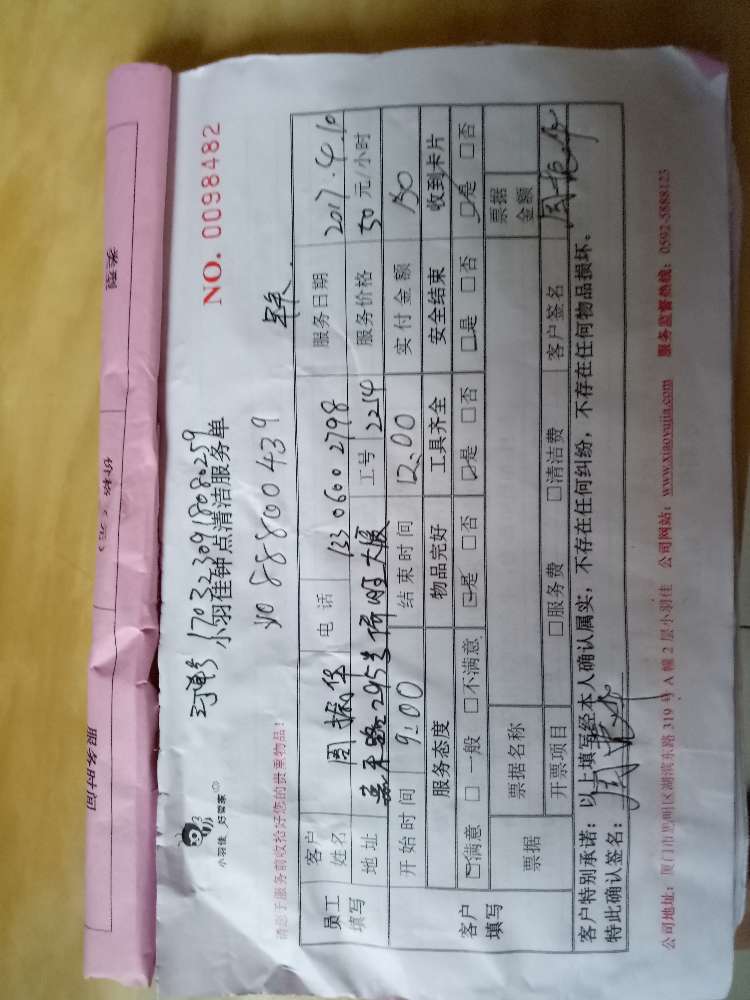 类型
价格（元）
服务时间
订单号 1703230918080259
NO. 0098482
小羽佳 好管家
小羽佳钟点清洁服务单
yo 88800439
请您于服务前收拾好您的贵重物品！
员工填写
客户姓名 周振华 电话 133 0600 2798 服务日期 2017.4.10
地址 295号侨明大厦 工号 2254 服务价格 50 元/小时
开始时间 9:00 结束时间 12:00 实付金额 150
客户填写
服务态度 物品完好 工具齐全 安全结束 收到卡片
☑满意 □一般 □不满意 ☑是 □否 ☑是 □否 □是 □否 ☑是 □否
票据 票据名称 票据金额
开票项目 □服务费 □清洁费 客户签名 周振华
客户特别承诺：以上填写经本人确认属实，不存在任何纠纷，不存在任何物品损坏。
特此确认签名： 周振华
公司地址：厦门市思明区湖滨东路 319 号 A 幢 2 层小羽佳 公司网站：www.xiaoyujia.com 服务监督热线：0592-5888123